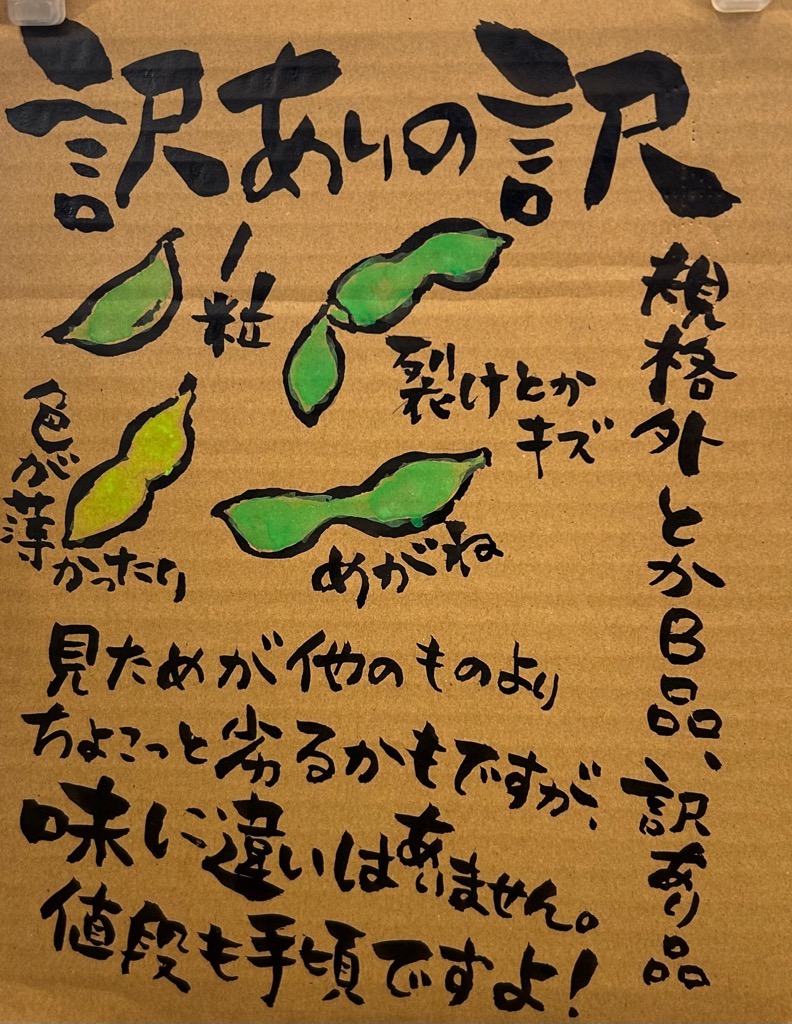 訳ありの訳
規格外とかB品、訳あり品
1粒
裂けとか
キズ
色が薄
かったり
めがね
見ためが他のものより
ちょこっと劣るかもですが、
味に違いはありません。
値段も手頃ですよ!